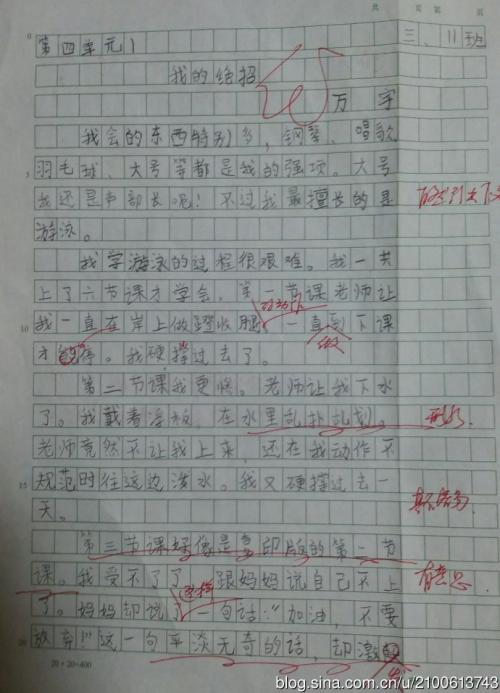 共 页 第 页
第四单元1 三、11班
我的绝招
万宇
我会的东西特别多,钢琴、唱歌
羽毛球、大号等都是我的强项。大号
我还是声部长呢!不过我最擅长的是
游泳。
我学游泳的过程很艰难。我一共
上了六节课才学会。第一节课老师让
我一直在岸上做蹬收腿,一直到下课
才停。我硬撑过去了。
第二节课我更惨。老师让我下水
了。我戴着浮板,在水里乱扑乱划。
老师竟然不让我上来,还在我动作不
规范时往这边泼水。我又硬撑过去一
天。
第三节课好像是复印版的第二节
课。我受不了了,跟妈妈说自己不上
了。妈妈却说了一句话:“加油,不要
放弃!”这一句平淡无奇的话,却激
20×20=400
blog.sina.com.cn/u/2100613743